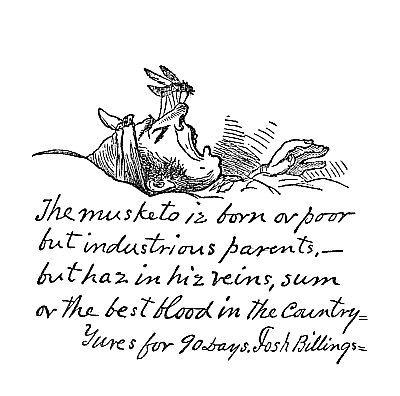 The musketo iz born ov poor
but industrious parents,—
but haz in hiz veins, sum
ov the best blood in the Country=
Yures for 90 Days. Josh Billings=